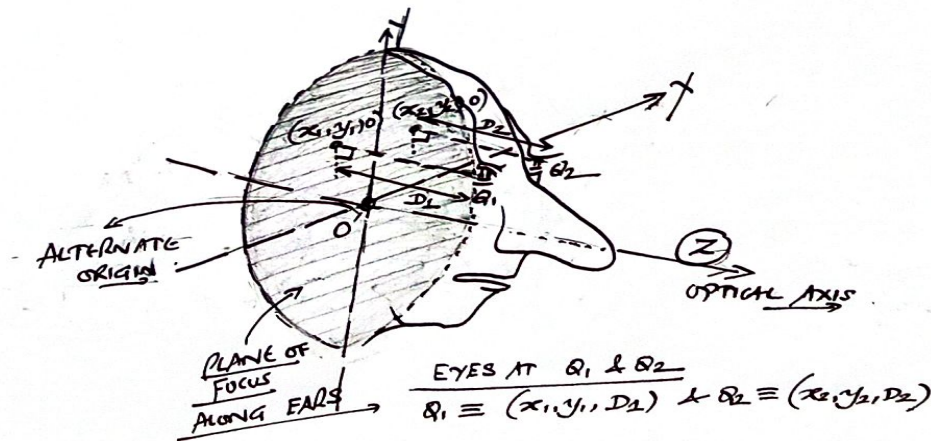 Y
X
(x₁, y₁, 0)
(x₂, y₂, 0)
D₂
Q₂
Q₁
D₁
O'
Z
ALTERNATE
ORIGIN
OPTICAL AXIS
PLANE OF
FOCUS
ALONG EARS
EYES AT Q₁ & Q₂
Q₁ ≡ (x₁, y₁, D₁) & Q₂ ≡ (x₂, y₂, D₂)